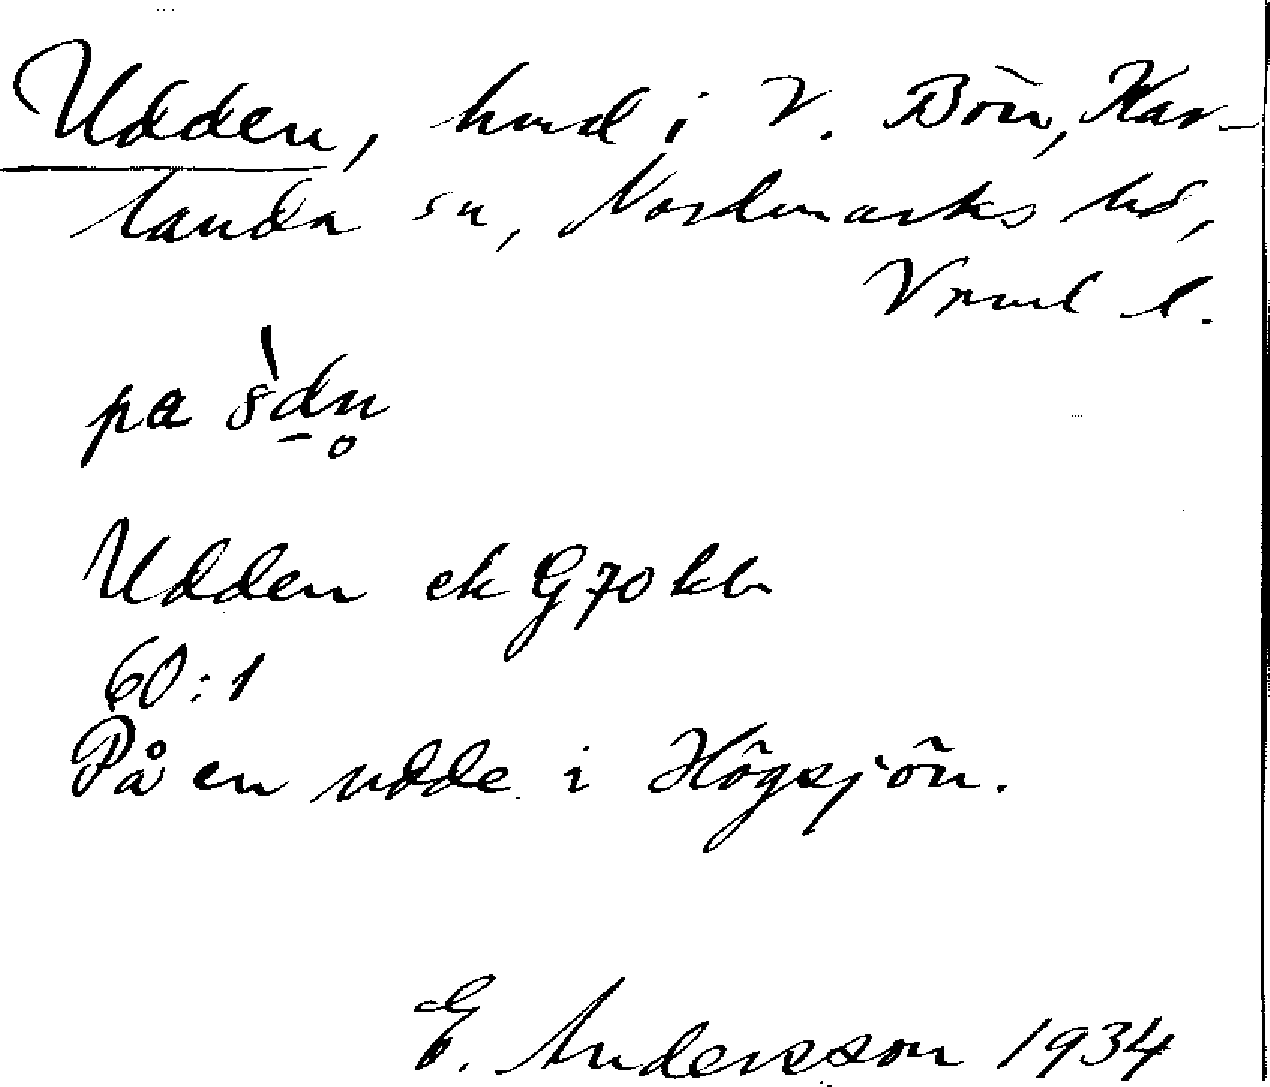 Udden, hmd i V. Bön, Kar-
landa sn, Nordmarks hd,
Vrml l.
pa
Udden ek G70 kbr
60:1
På en udde i Högsjön.
E. Andersson 1934